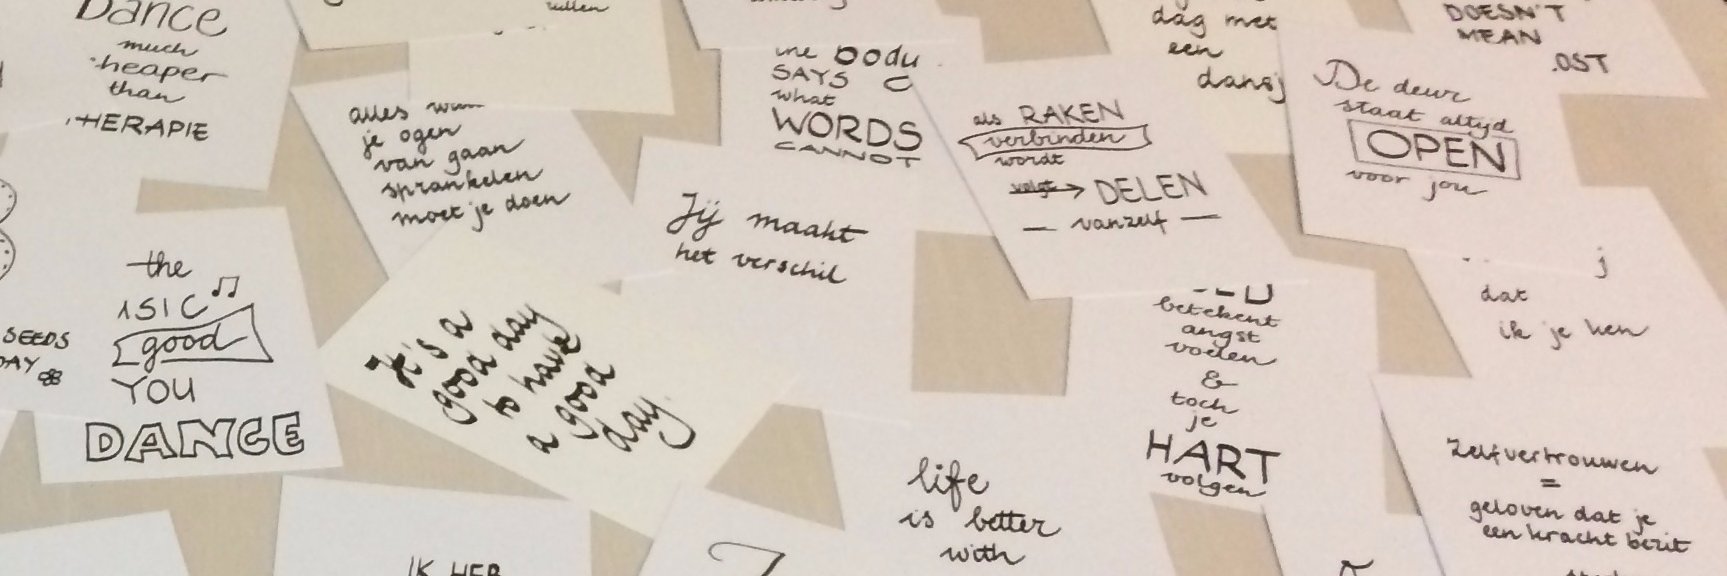 Dance
much
heaper
than
HERAPIE
alles
je ogen
van gaan
sprankelen
moet je doen
body
SAYS
what
WORDS
CANNOT
als RAKEN
verbinden
wordt
DELEN
vanzelf
dag met
een
DOESN'T
MEAN
OST
De deur
staat altijd
OPEN
voor jou
Jij maakt
het verschil
the
good
YOU
DANCE
SEEDS
It's a
good day
to have
a good
day.
betekent
angst
voelen
&
toch
je
HART
volgen
dat
ik je ken
life
is better
with
Zelfvertrouwen
=
geloven dat je
een kracht bezit
IK HEB